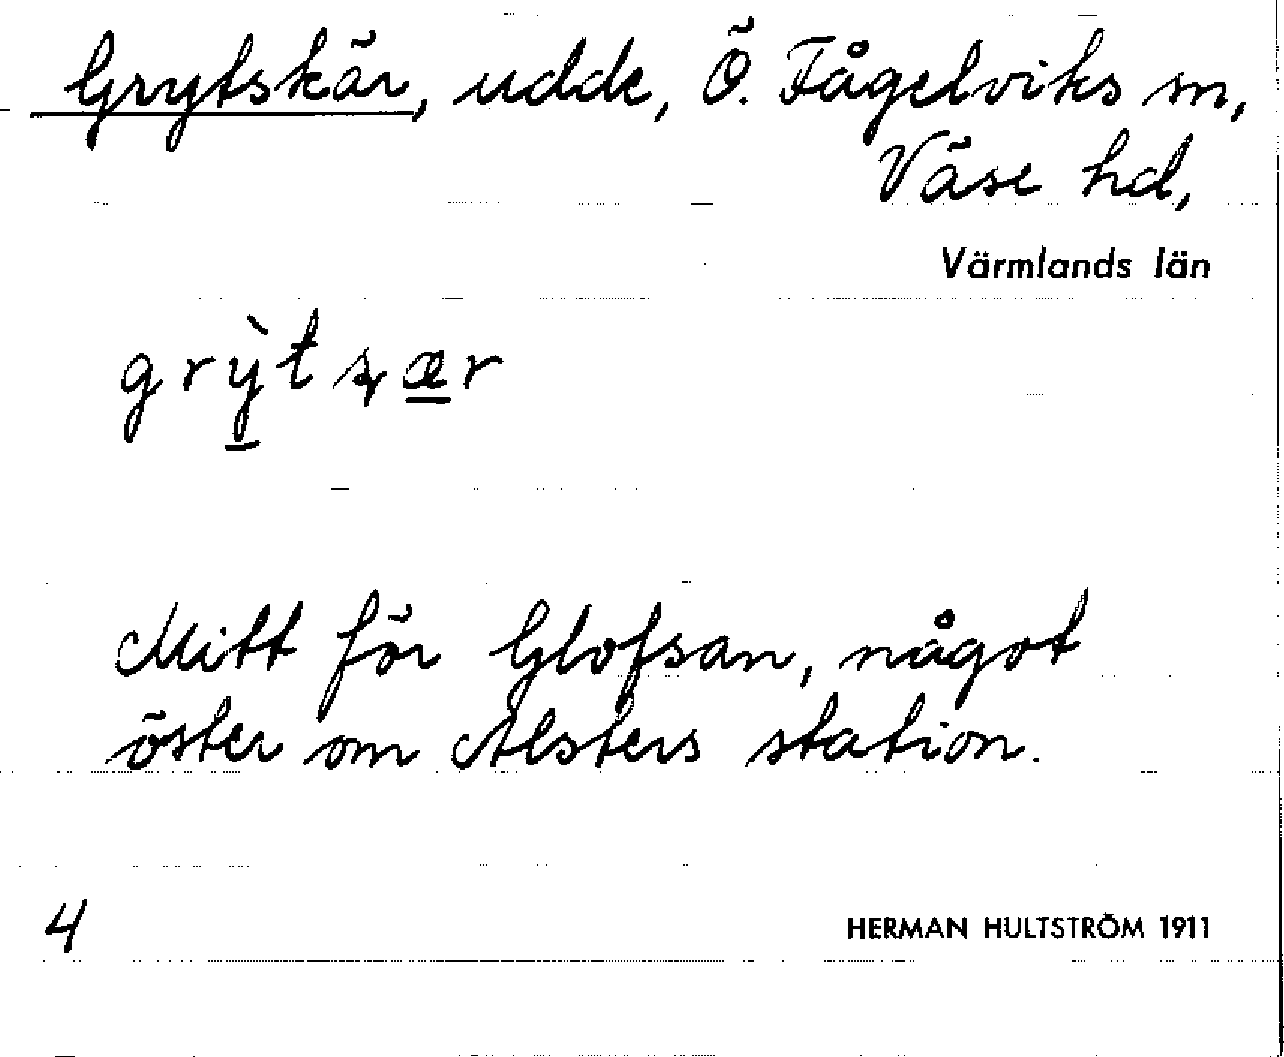 Grytskär, udde, Ö. Fågelviks sn,
Väse hd,
Värmlands län
Mitt för Glofsan, något
öster om Alsters station.
4
HERMAN HULTSTRÖM 1911